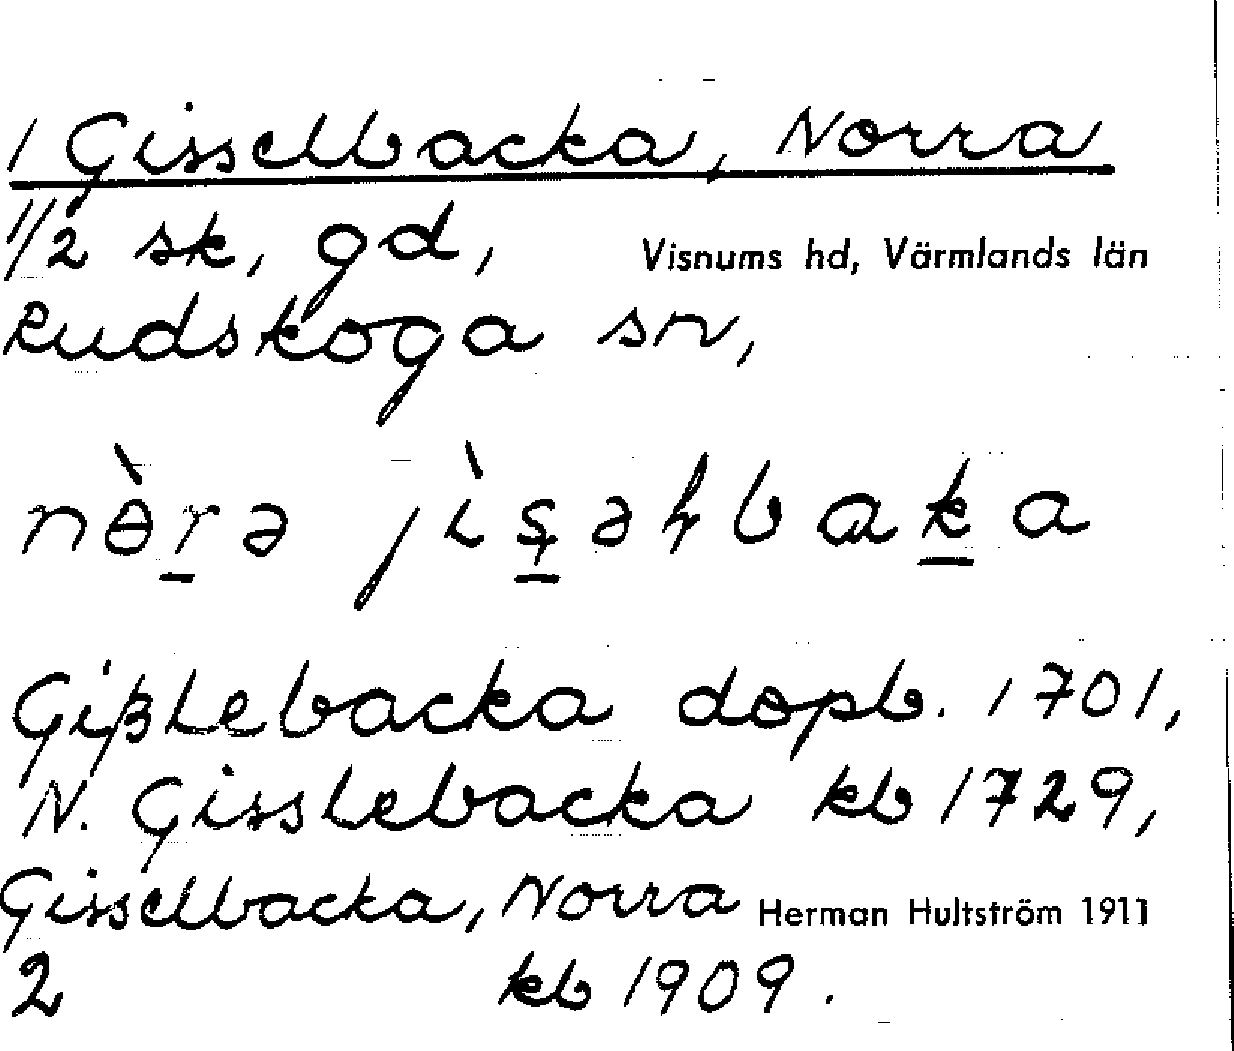 1 Gisselbacka, Norra
1/2 sk, gd, Visnums hd, Värmlands län
Rudskoga sn,
nɵ̀r̲ə jìs̲əɫbak̲a
Gißlebacka dopb. 1701,
N. Gisslebacka kb 1729,
Gisselbacka, Norra Herman Hultström 1911
2 kb 1909.